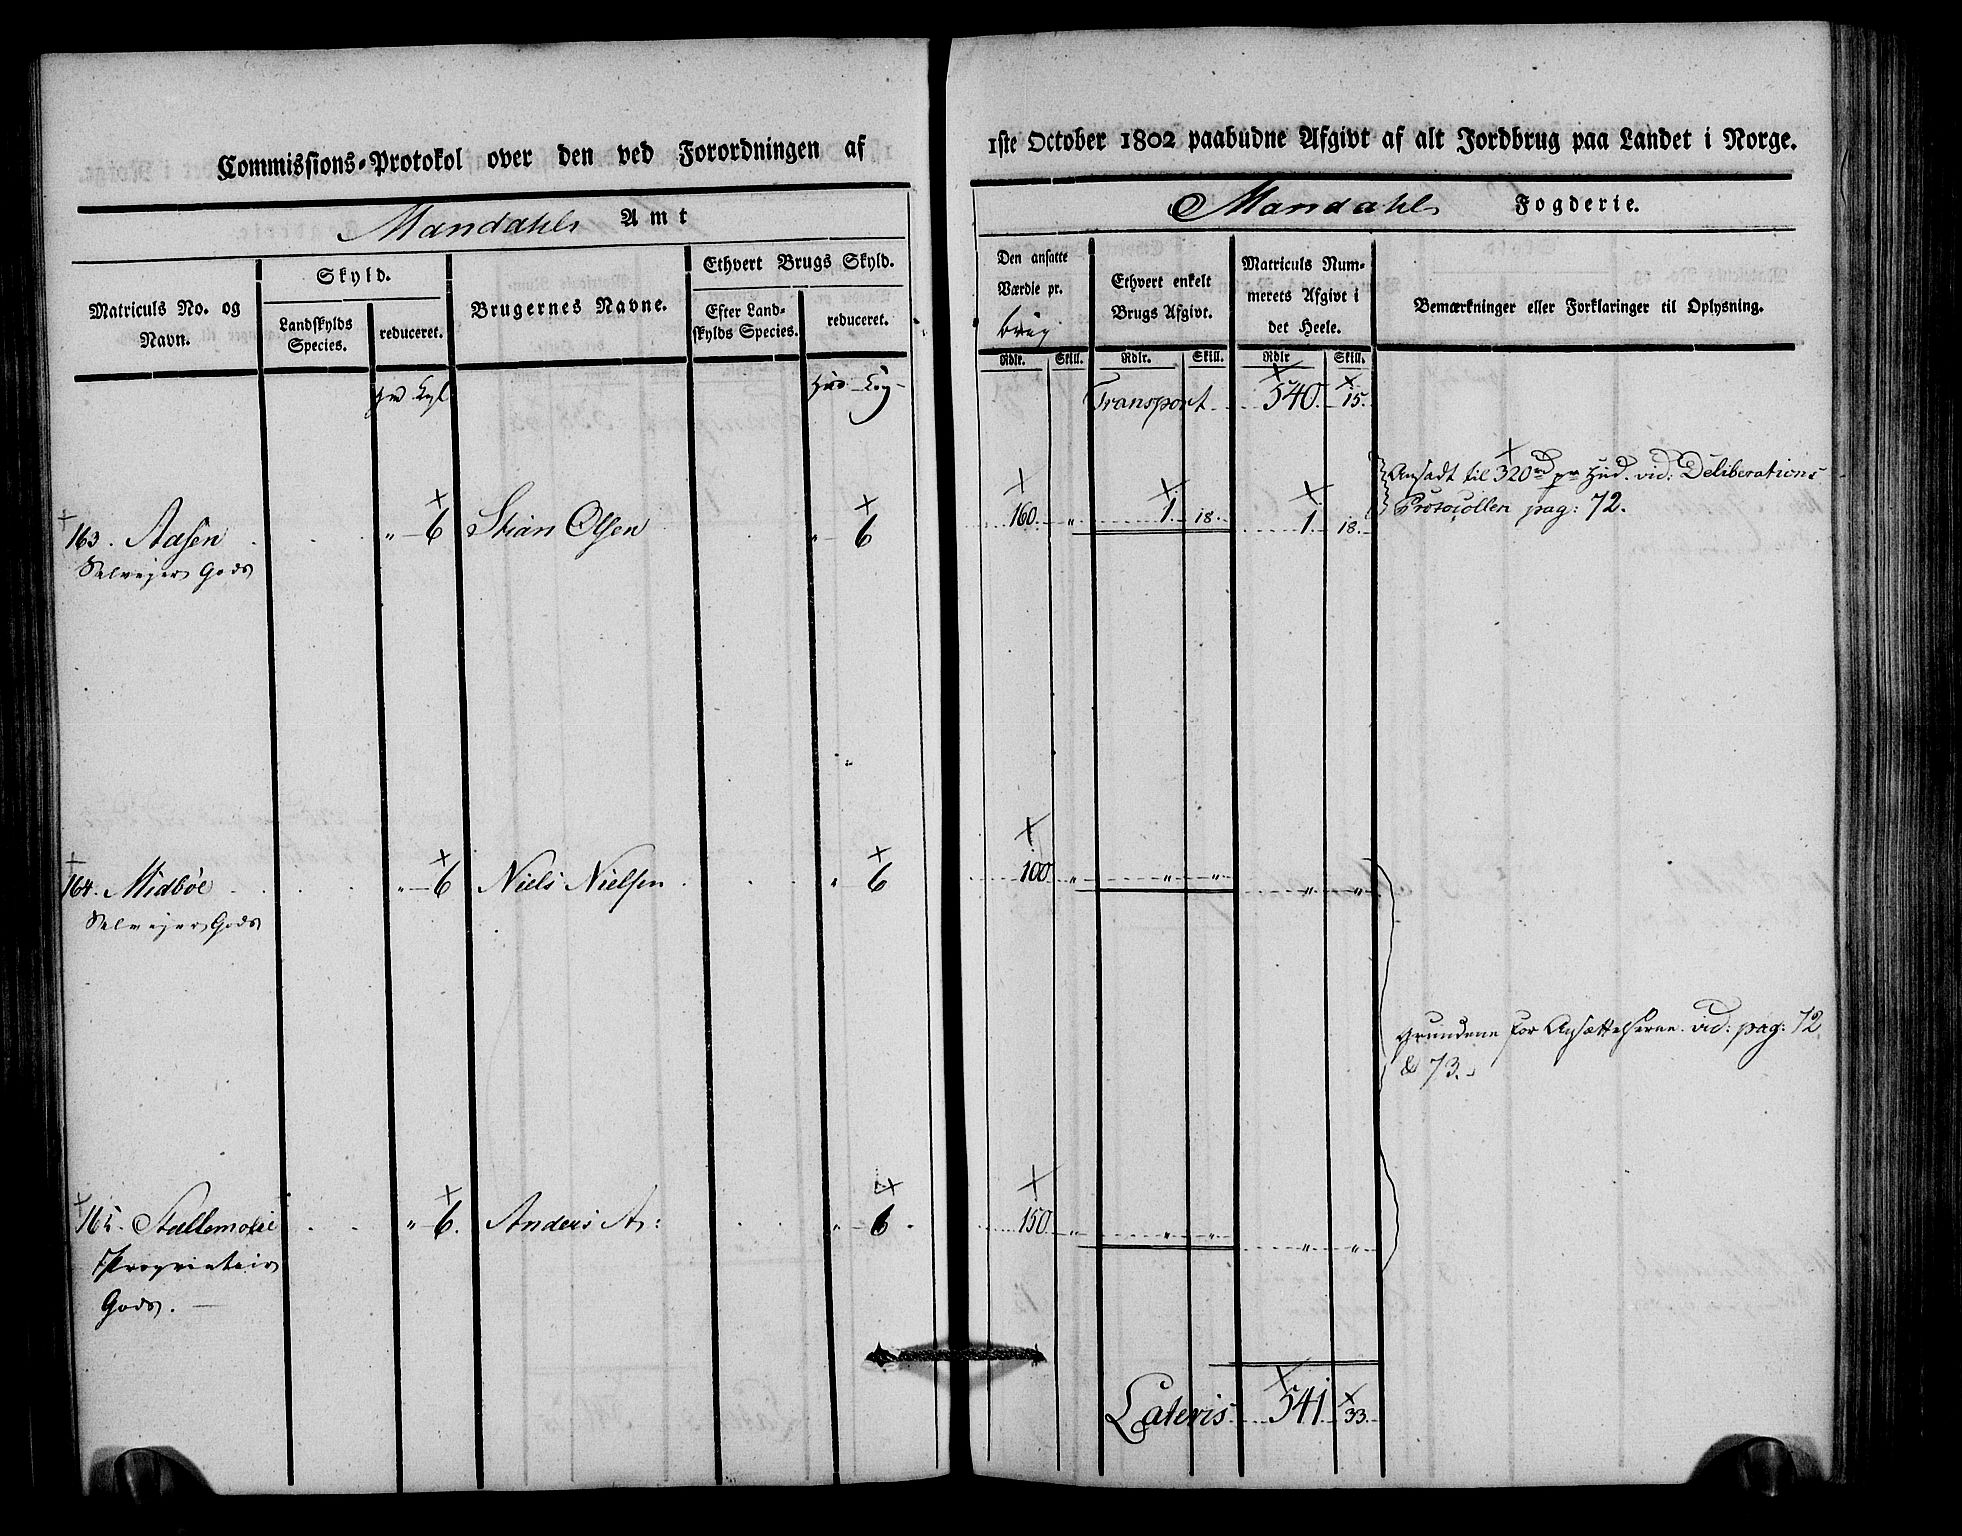 Commissions-Protokol over den ved Forordningen af
Mandahls Amt
Matriculs No. og Navn.
Skyld.
Landskylds Species.
reduceret.
Brugernes Navne.
Ethvert Brugs Skyld.
Efter Landskylds Species.
reduceret.
Hud
163. Aasen " 6 Stian Olsen " 6
Selveyer Gods
164. Midbøe " 6 Niels Nielsen " 6
Selveyer Gods
165. " 6. Anders A: " 6
Proprietair
Gods.
1ste October 1802 paabudne Afgivt af alt Jordbrug paa Landet i Norge.
Mandahls Fogderie.
Den ansatte Værdie pr. brug
Ethvert enkelt Brugs Afgivt.
Matriculs Nummerets Afgivt i det Heele.
Bemærkninger eller Forklaringer til Oplysning.
Rdlr. Skill. Rdlr. Skill. Rdlr Skill.
Transport 540. 15.
Ansadt til 320 rd pr Hud. vid: Deliberations
Protocollen pag: 72.
160. " 1. 18. 1. 18.
100 " " " " "
Grundene for Ansættelserne vid: pag: 72
& 73.
150. " " " " "
Lateris 541. 33.